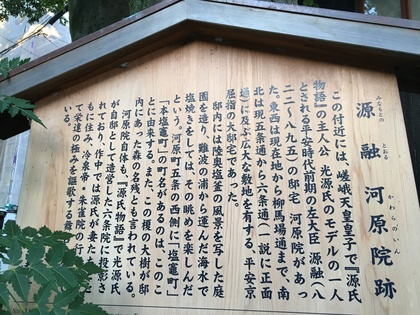 源融 河原院跡
みなもとの とおる かわらのいん
この付近には、嵯峨天皇皇子で『源氏
物語』の主人公 光源氏のモデルの一人
とされる平安時代前期の左大臣 源融（八
二二～八九五）の邸宅 河原院があっ
た。東西は現在地から柳馬場通まで、南
北は現五条通から六条通（一説に正面
通）に及ぶ広大な敷地を有する、平安京
屈指の大邸宅であった。
邸内には陸奥塩釜の風景を写した庭
園を造り、難波の浦から運んだ海水で
塩焼きをしては、その眺めを楽しんだ
という。河原町五条の西側に「塩竈町」
「本塩竈町」の町名があるのは、このこ
とに由来する。また、この榎の大樹が邸
内にあった森の名残とも言われている。
河原院自体も、『源氏物語』で光源氏
が自邸として造営した六条院に投影さ
れており、作中では源氏が妻たちと
もに住み、冷泉帝・朱雀院の行
て栄達の極みを謳歌する舞
いる。